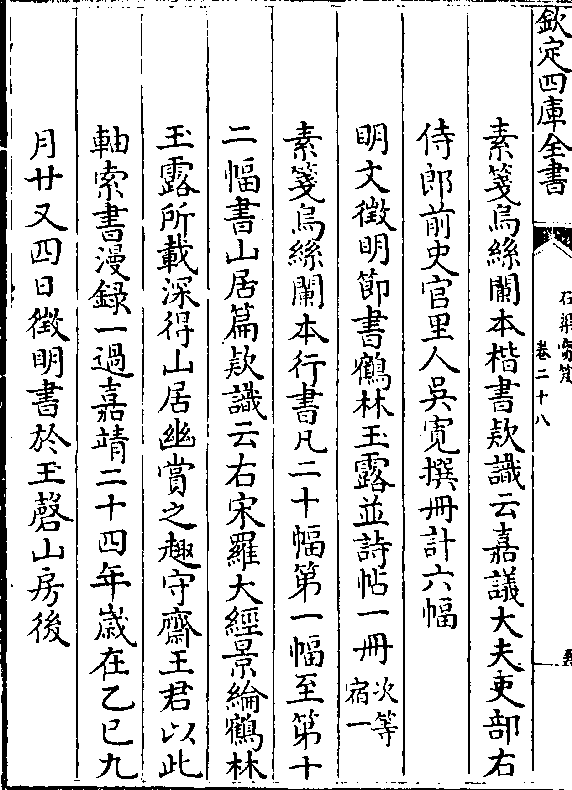 欽定四庫全書
卷二十八
素箋烏絲闌本楷書欵識云嘉議大夫吏部右
侍郎前史官里人吳寛撰冊計六幅
明文徵明節書鶴林玉露並詩帖一冊次等
宿一
素箋烏絲闌本行書凡二十幅第一幅至第十
二幅書山居篇欵識云右宋羅大經景綸鶴林
玉露所載深得山居幽賞之趣守齋王君以此
軸索書漫録一過嘉靖二十四年嵗在乙巳九
月廿又四日徵明書於玉磬山房後